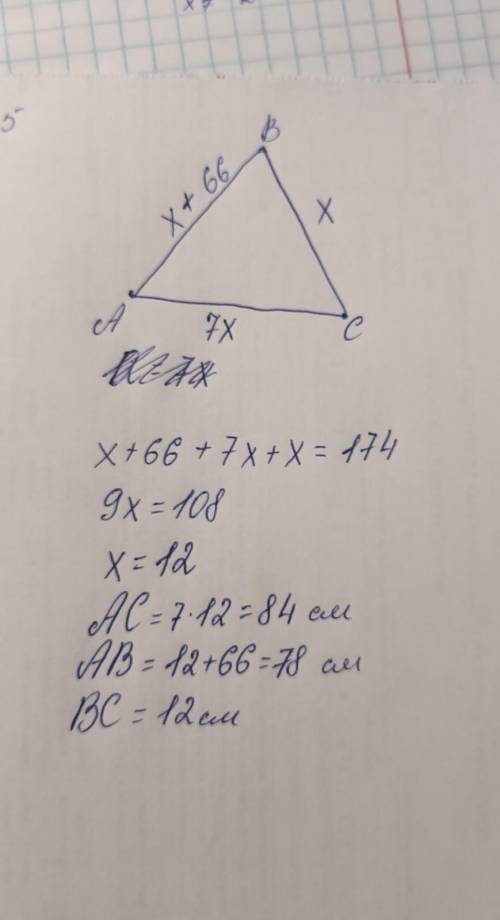 5
B
x + 66
x
A
7x
C
x + 66 + 7x + x = 174
9x = 108
x = 12
AC = 7 · 12 = 84 см
AB = 12 + 66 = 78 см
BC = 12 см